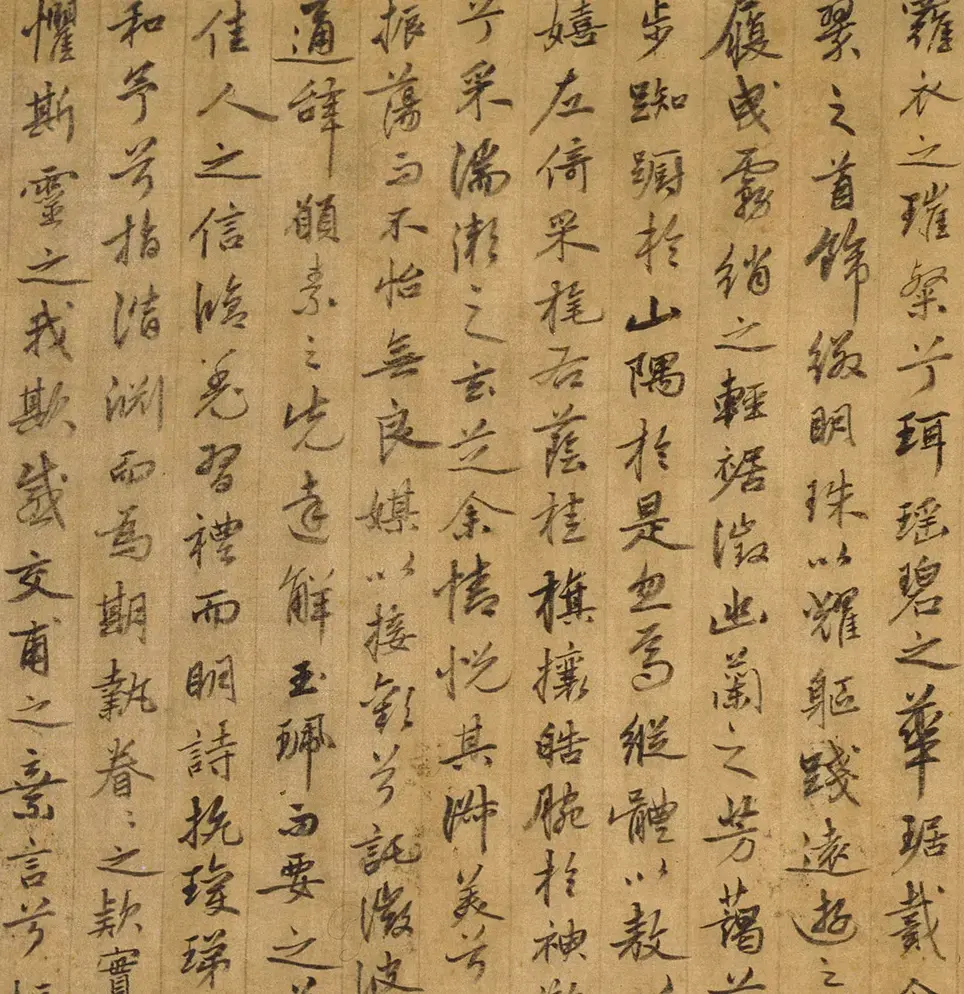 羅衣之璀粲兮珥瑤碧之華琚戴
翠之首飾綴明珠以耀軀踐遠遊之
履曳霧綃之輕裾微幽蘭之芳藹兮
步踟躕於山隅於是忽焉縱體以敖
嬉左倚采旄右蔭桂旗攘皓腕於神
兮采湍瀨之玄芝余情悅其淑美兮
振蕩而不怡無良媒以接歡兮託微波
通辭願素之先達解玉珮而要之
佳人之信脩羌習禮而明詩抗瓊珶
和予兮指潛淵而為期執眷〻之款實
懼斯靈之我欺感交甫之棄言兮